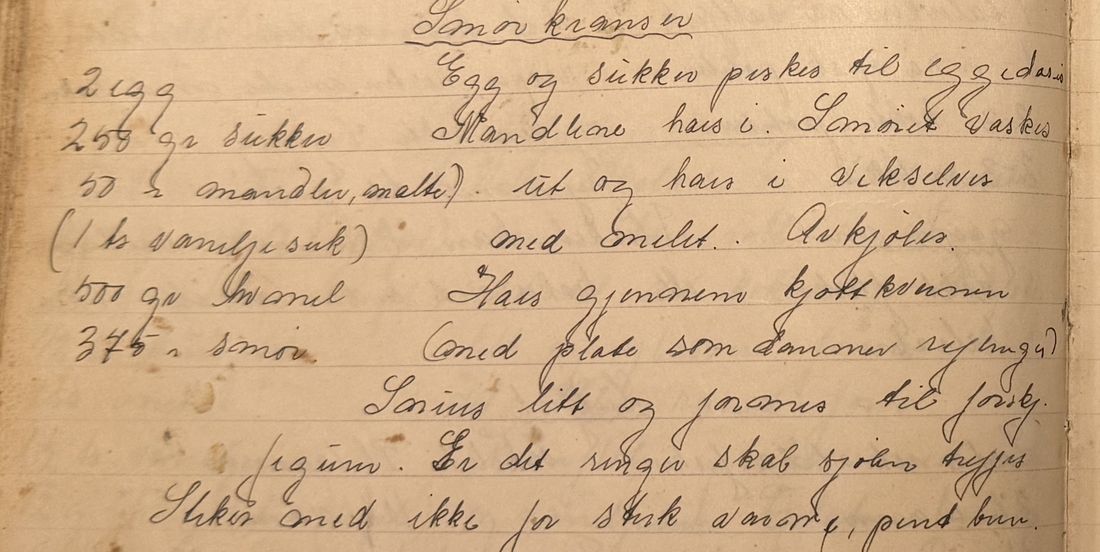 Smørkranser
2 egg Egg og sukker piskes til eggedosis
250 gr sukker Mandlene haes i. Smøret vaskes
50 " mandler, malte). ut og haes i vekselvis
(1 ts vaniljesuk) med melet. Avkjøles.
500 gr hvmel Haes gjennem kjøttkvernen
375 " smør. (med plate som danner
litt og formes til forskj.
figurer. Er det ringer skal sjølen treffes
Stekes med ikke for sterk varme, pent brun.